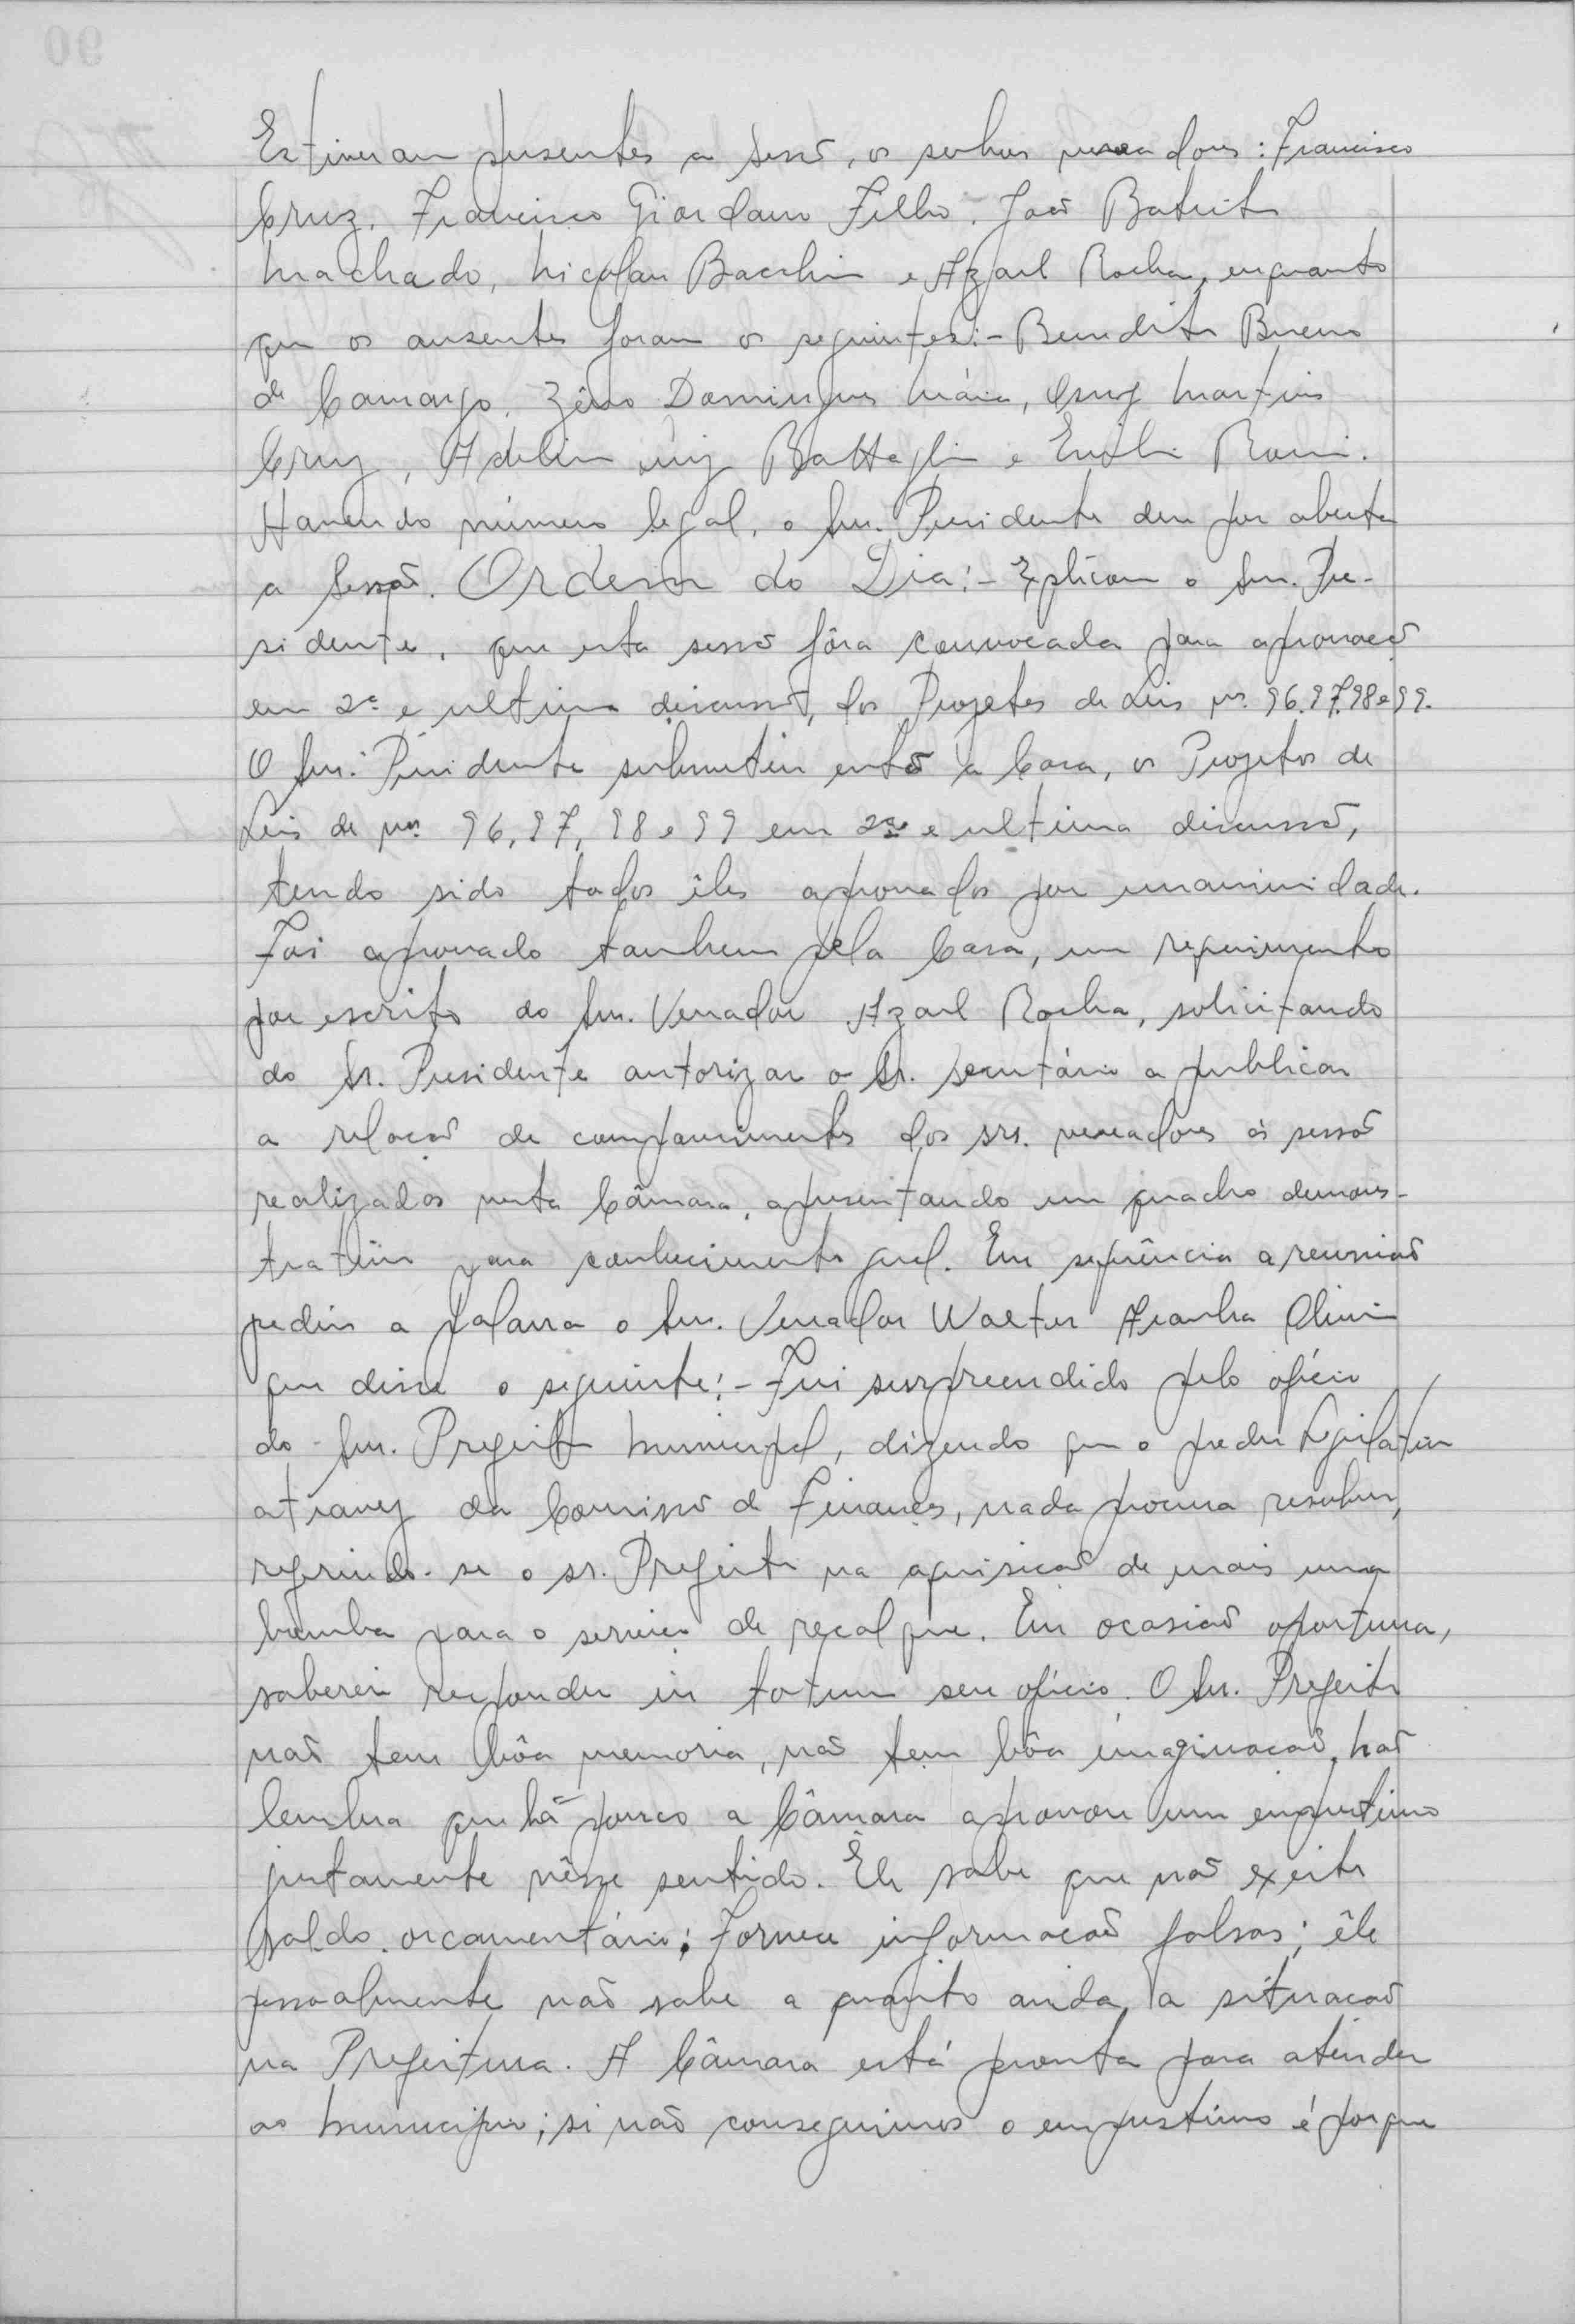 Estiveram presentes a sessão, os senhores vereadores: Francisco
Cruz, Francisco Giordano Filho, João Batista
Machado, Nicolau Bacchin e Azael Rocha, enquanto
que os ausentes foram os seguintes:- Benedito Bueno
de Camargo, Zêno Domingues Mária, Cruz Martins
Cruz, Adelino Luiz Battaglin e Emilio Romi.
Havendo número legal, o Snr. Presidente deu por aberta
a Sessão. Ordem do Dia:- Explicou o Snr. Pre-
sidente, que esta sessão fôra convocada para aprovação
em 2ª e ultima discussão, dos Projetos de Leis nº. 96.97.98 e 99.
O Snr. Presidente submeteu então a Casa, os Projetos de
Leis de nos. 96, 97, 98 e 99 em 2ª e ultima discussão,
tendo sido todos êles aprovados por unanimidade.
Foi aprovado tambem pela Casa, um requerimento
por escrito do Snr. Vereador Azael Rocha, solicitando
do Sr. Presidente autorizar o Sr. secretário a publicar
a relação de comparecimentos dos srs. vereadores ás sessões
realizadas nesta Câmara, apresentando um quadro demons-
trativo para conhecimento geral. Em seqüência a reunião
pediu a palavra o Snr. Vereador Walter Aranha Olivi
que disse o seguinte:- Fui surpreendido pelo ofício
do Snr. Prefeito Municipal, dizendo que o poder Legislativo
atravez da Comissão de Finanças, nada procura resolver,
referindo-se o sr. Prefeito na aquisição de mais uma
bomba para o serviço de recalque. Em ocasião oportuna,
saberei responder in totum seu ofício. O Snr. Prefeito
não tem bôa memoria, não tem bôa imaginação, não
lembra que há pouco a Câmara aprovou um emprestimo
justamente nêsse sentido. Êle sabe que não existe
saldo orçamentário; Fornece informações falsas; êle
pessoalmente não sabe a quanto anda a situação
na Prefeitura. A Câmara está pronta para atender
ao Municipio; si não conseguimos o empréstimo é porque